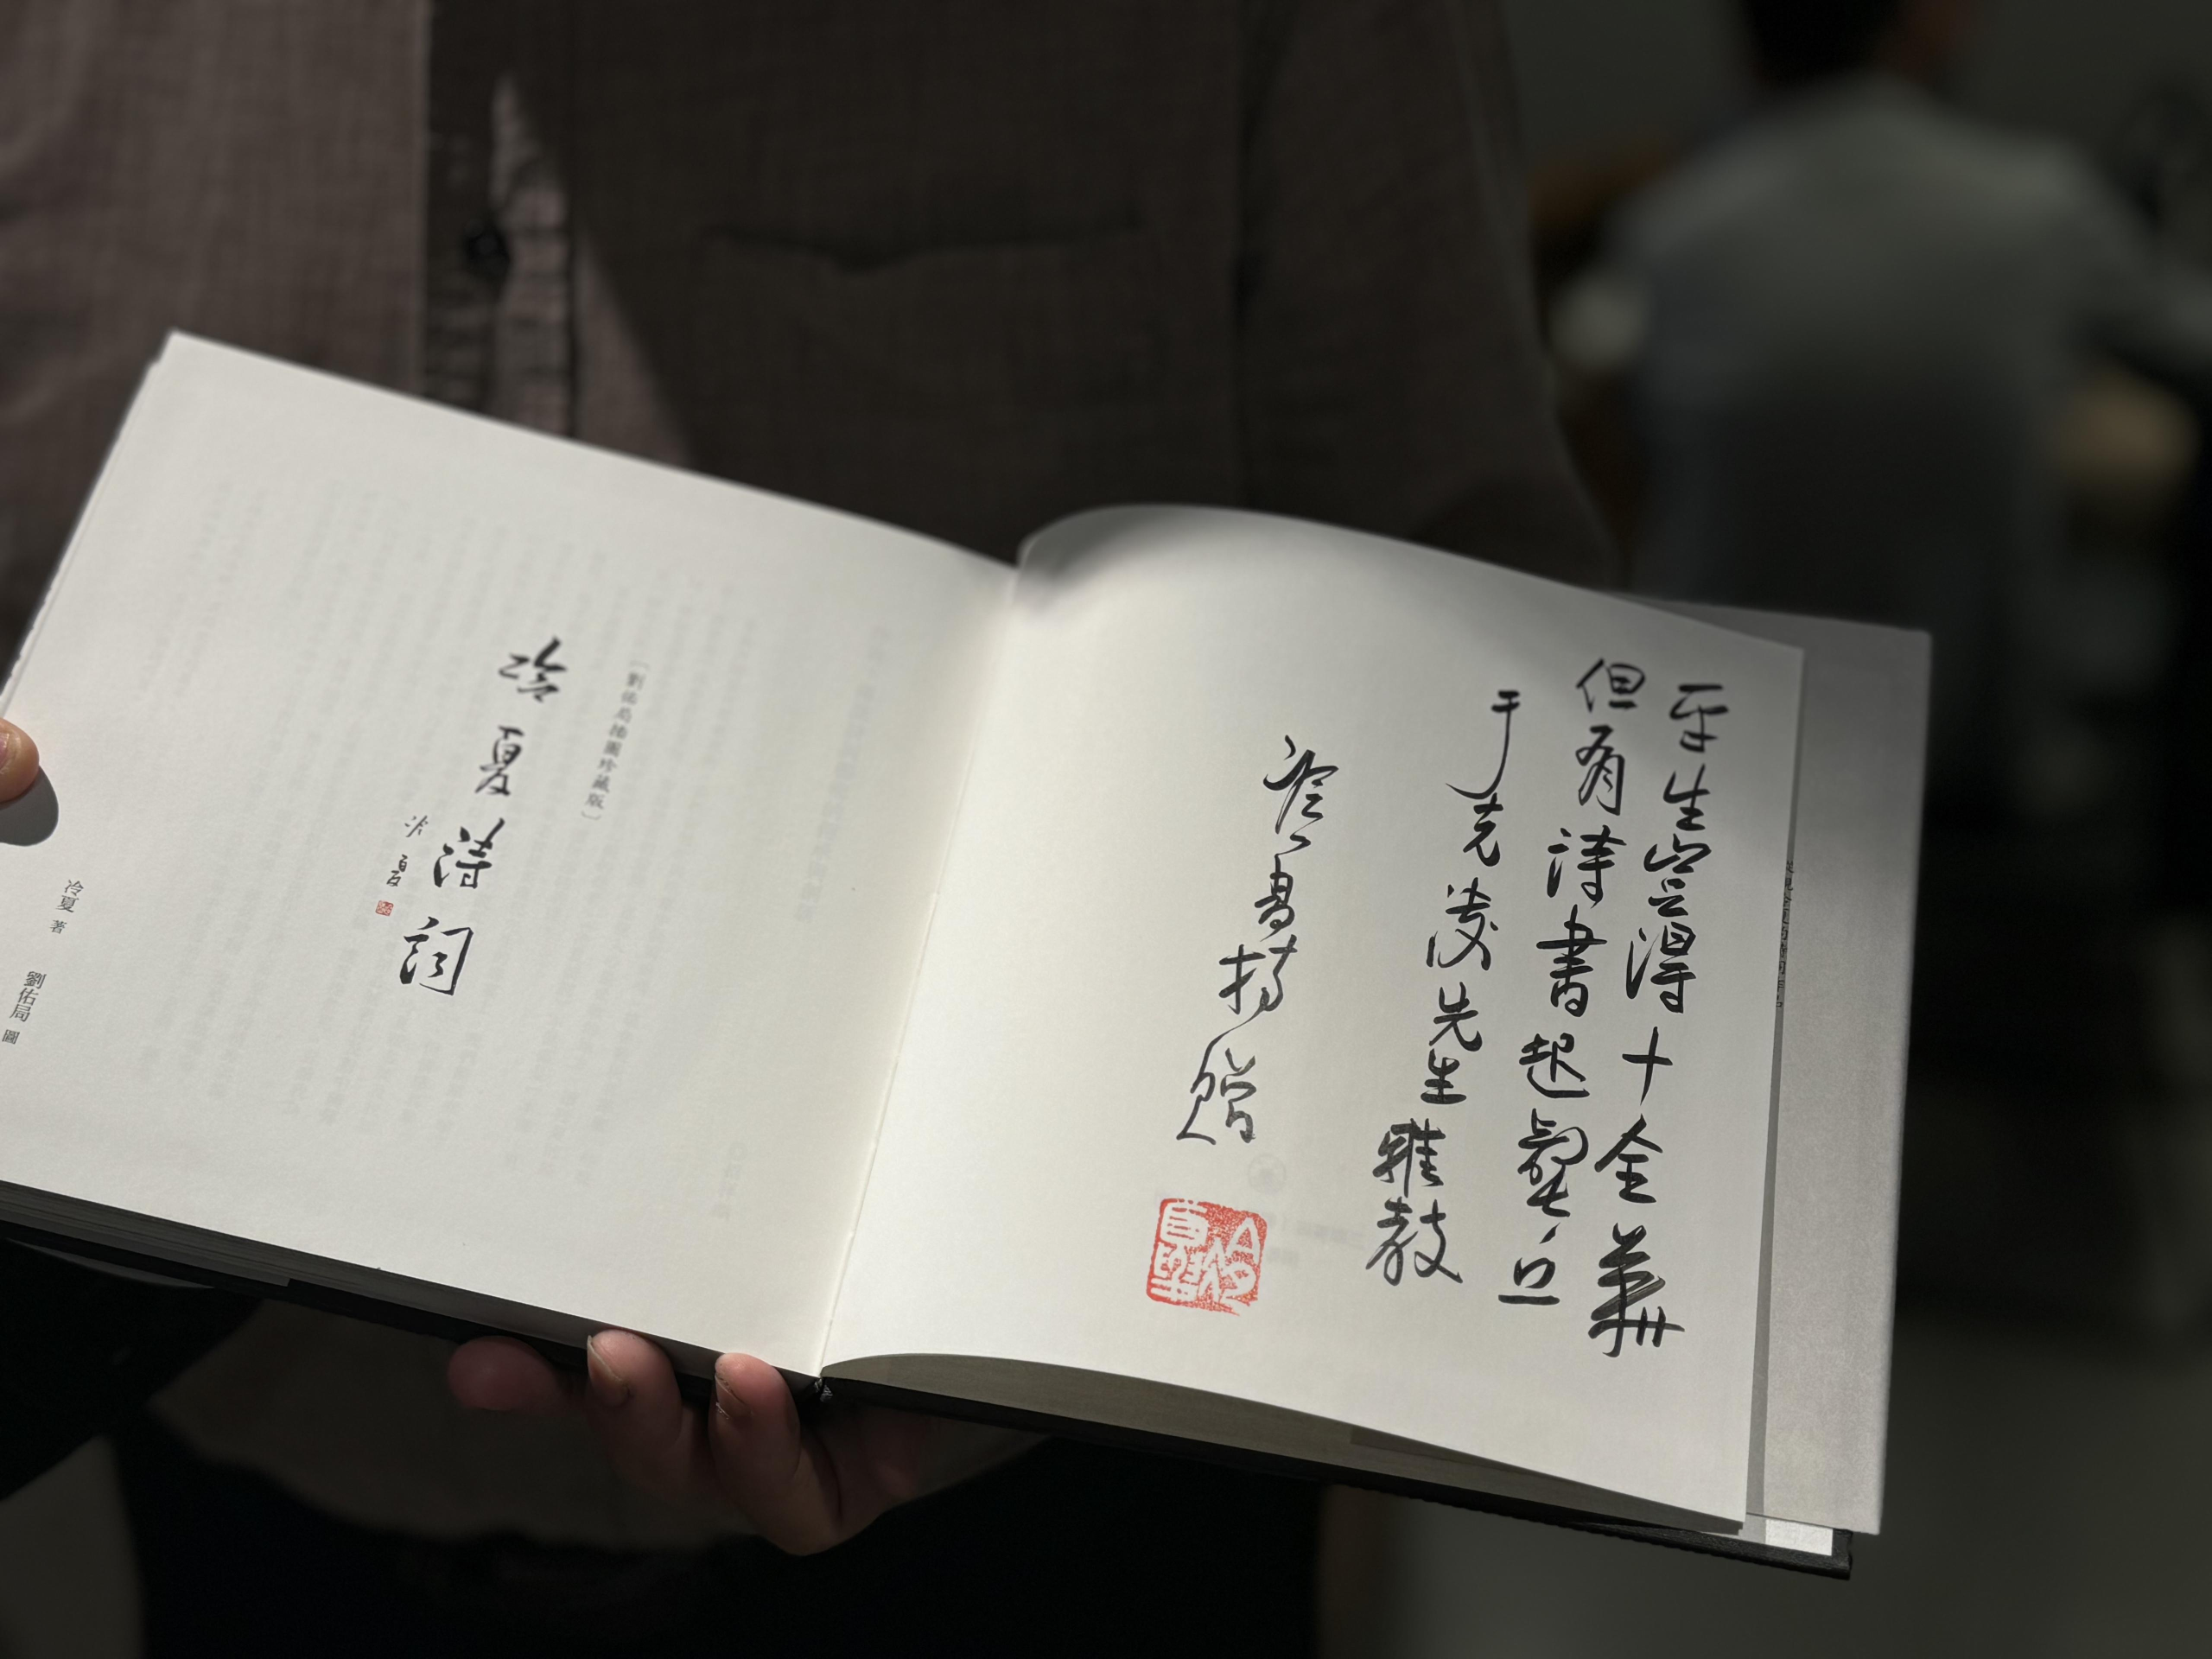 平生豈得十全美
但有詩書起鬢立
于克凌先生雅教
冷夏持贈
〔劉佑局插圖珍藏版〕
冷夏詩詞
冷夏
冷夏 著 劉佑局 圖